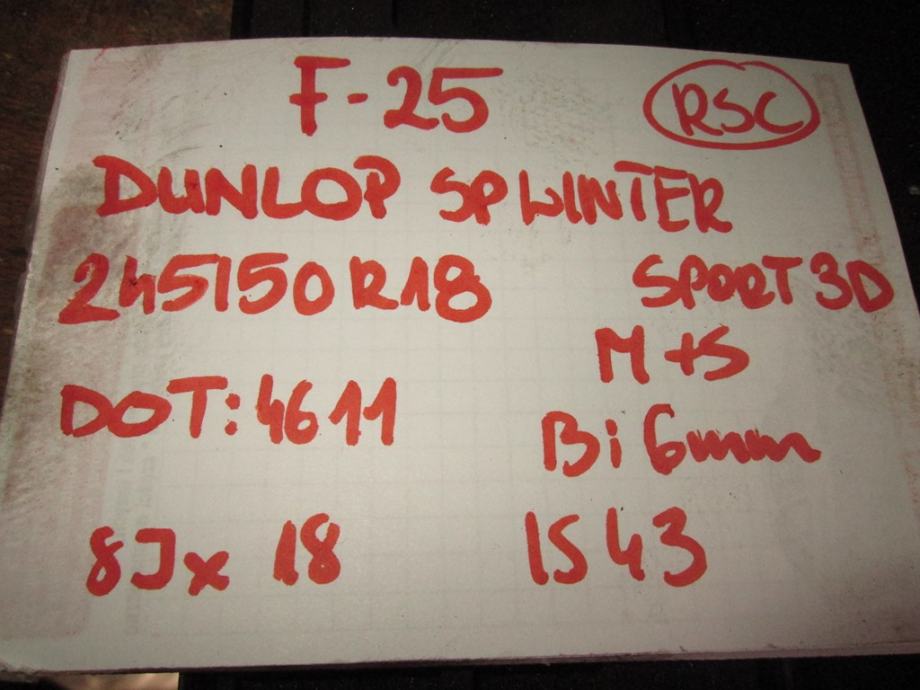 F-25 RSC
DUNLOP SP WINTER
245/50 R18 SPORT 3D
M+S
DOT: 4611
Bi 6mm
8Jx 18 IS 43